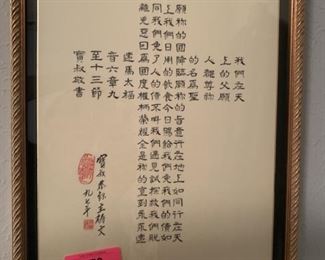 我們在天
上的父願
人都尊祢
的名為聖
願祢的國降臨願祢的旨意行在地上如同行在天
上我們日用的飲食今日賜給我們免我們的債如
同我們免了人的債不叫我們遇見試探救我們脫
離兇惡因為國度權柄榮耀全是祢的直到永永遠
遠馬太福
音六章九
至十三節
寶叔敬書
寶叔恭錄主禱文
九七年